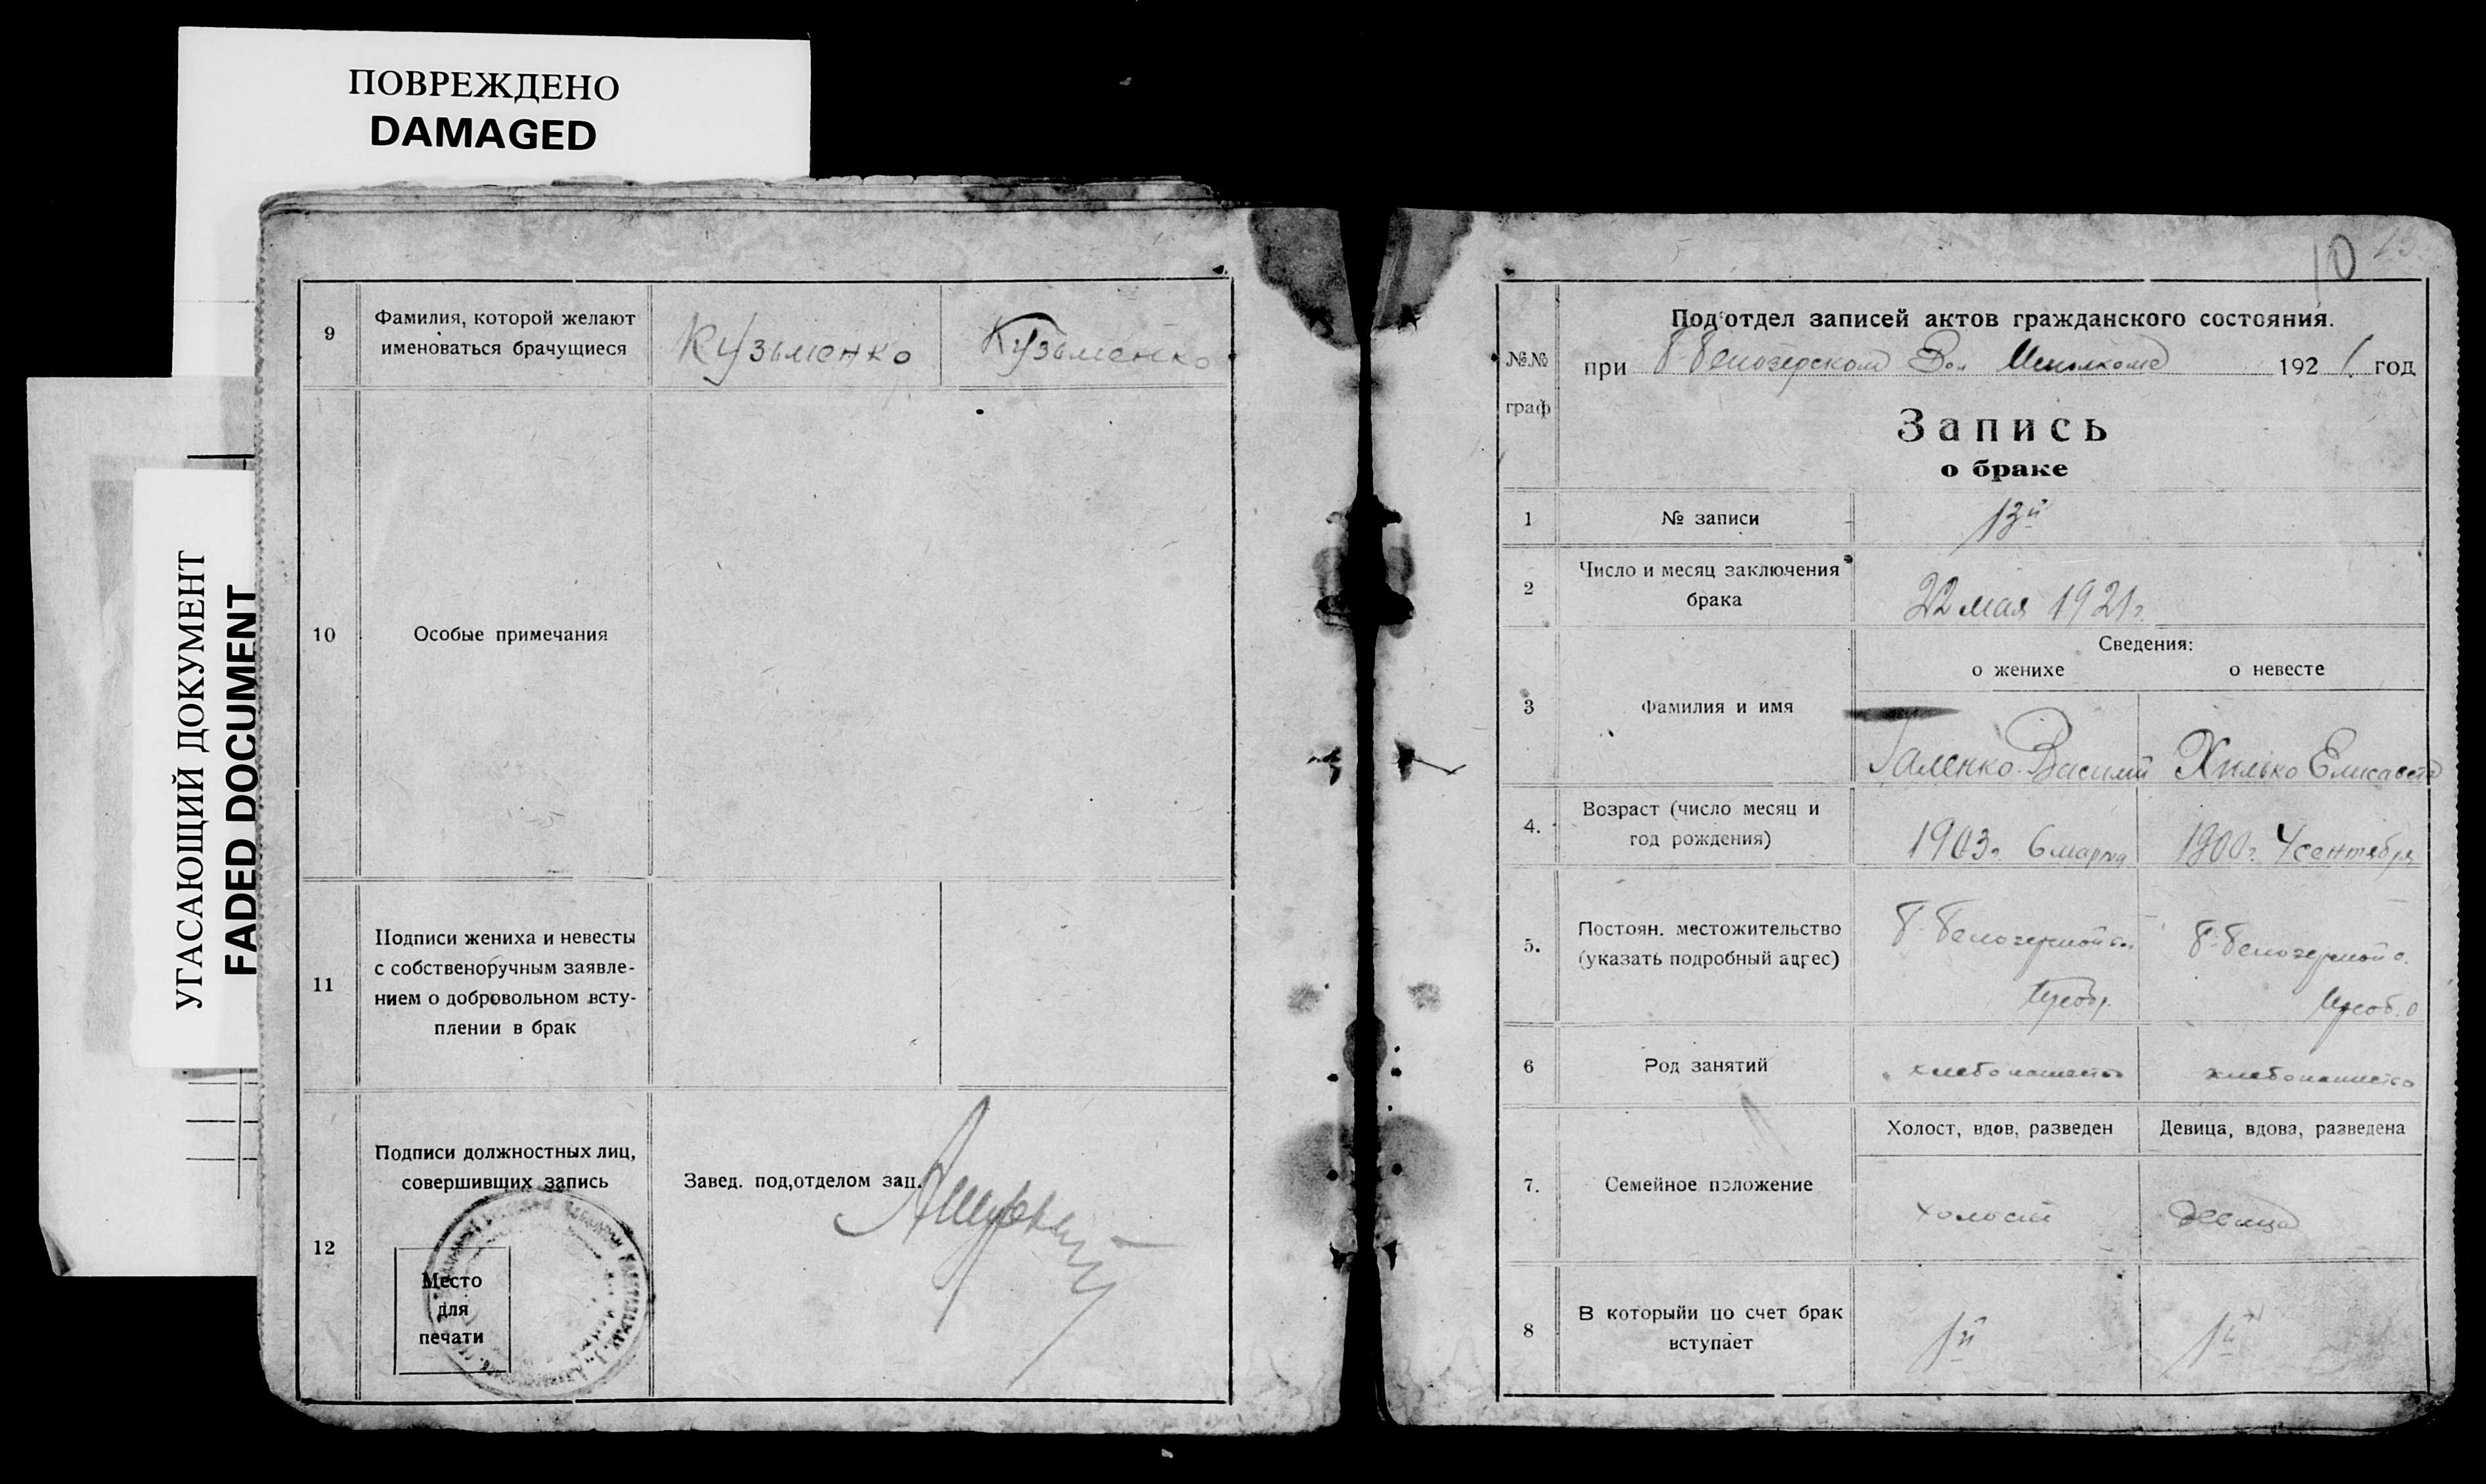 ПОВРЕЖДЕНО
DAMAGED
УГАСАЮЩИЙ ДОКУМЕНТ
FADED DOCUMENT
9
Фамилия, которой желают
именоваться брачущиеся
Кузьменко
Кузьменко
10
Особые примечания
11
Подписи жениха и невесты
с собственоручным заявле-
нием о добровольном всту-
плении в брак
12
Подписи должностных лиц,
совершивших запись
Место
для
печати
Завед. под,отделом зап.
10
13
Под'отдел записей актов гражданского состояния.
№№
граф
при Б-Белозерском Вол Исполкоме 1921 год
Запись
о браке
1
№ записи
13й
2
Число и месяц заключения
брака
22 мая 1921г.
Сведения:
о женихе
о невесте
3
Фамилия и имя
Галенко Василий
Хилько Елисавета
4.
Возраст (число месяц и
год рождения)
1903г. 6 марта
1900г. 4 сентября
5.
Постоян. местожительство
(указать подробный адрес)
Б-Белозерской
Б-Белозерской
6
Род занятий
хлебопашество
хлебопашество
7.
Семейное положение
Холост, вдов, разведен
Девица, вдова, разведена
холост
девица
8
В которыйи по счет брак
вступает
1й
1й